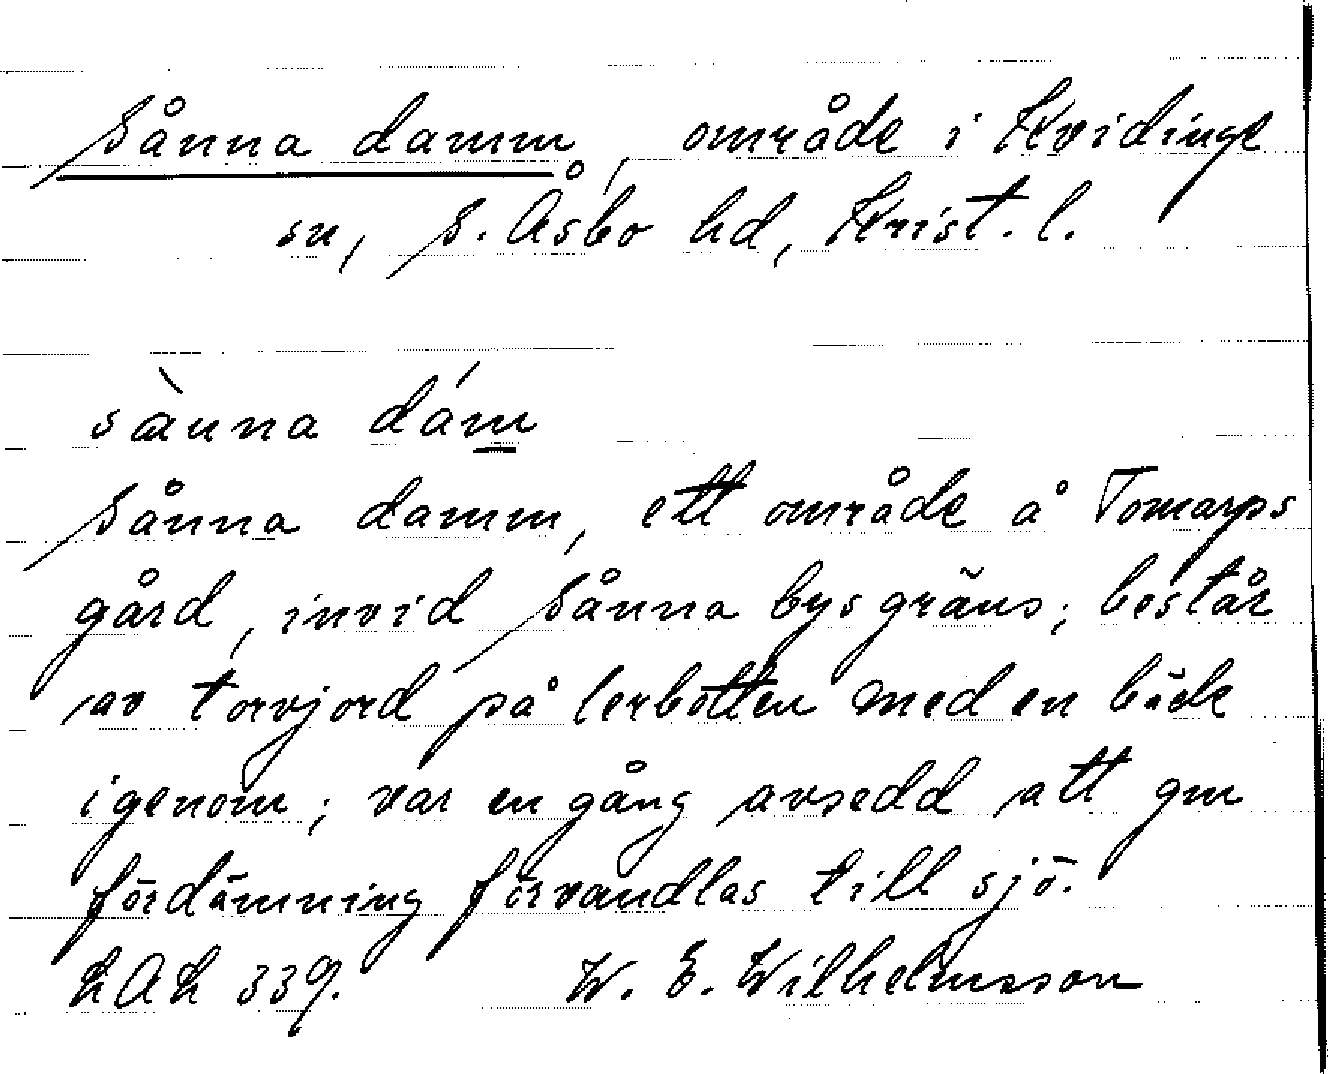 Sånna damm, område i Kvidinge
sn, S. Åsbo hd, Krist. l.
sànna dám
Sånna damm, ett område å Tomarps
gård, invid Sånna bys gräns; består
av torvjord på lerbotten med en bäck
igenom; var en gång avsedd att gm
fördämning förvandlas till sjö.
LAL 339. W. E. Wilhelmsson